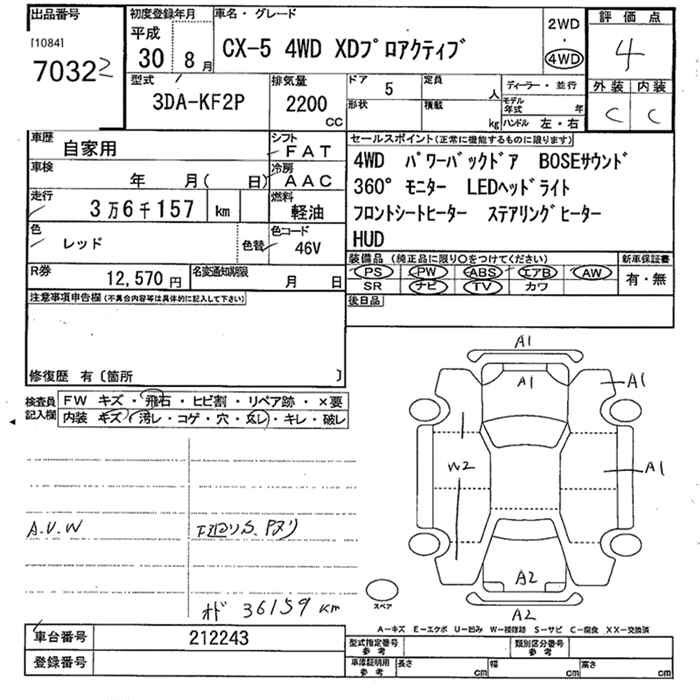 出品番号
[1084]
7032
初度登録年月
平成
30 8月
車名・グレード
CX-5 4WD XDプロアクティブ
2WD
・
4WD
評価点
4
外装 内装
C C
型式
3DA-KF2P
排気量
2200
CC
ドア
5
定員
人
形状
積載
kg
ディーラー・並行
モデル年式 年
ハンドル 左・右
車歴
自家用
シフト
FAT
車検
年 月( 日)
冷房
AAC
走行
3万6千157 km
燃料
軽油
色
レッド
色替
色コード
46V
R券
12,570円
名変通知期限
月 日
セールスポイント(正常に機能するものに限ります)
4WD パワーバックドア BOSEサウンド
360° モニター LEDヘッドライト
フロントシートヒーター ステアリングヒーター
HUD
装備品(純正品に限り○をつけてください)
新車保証書
PS PW ABS エアB AW
有・無
SR ナビ TV カワ
後日品
注意事項申告欄(不具合内容等は具体的に記入して下さい)
修復歴 有〔箇所 〕
検査員
記入欄
FW キズ・飛石・ヒビ割・リペア跡・×要
内装 キズ・汚レ・コゲ・穴・スレ・キレ・破レ
A.U.W
オド 36159 km
A1
A1
A1
W2
A1
A2
A2
スペア
A-キズ E-エクボ U-凹み W-補修跡 S-サビ C-腐食 XX-交換済
車台番号
212243
登録番号
型式指定番号
参考
類別区分番号
参考
車庫証明用
参考
長さ cm
幅 cm
高さ cm